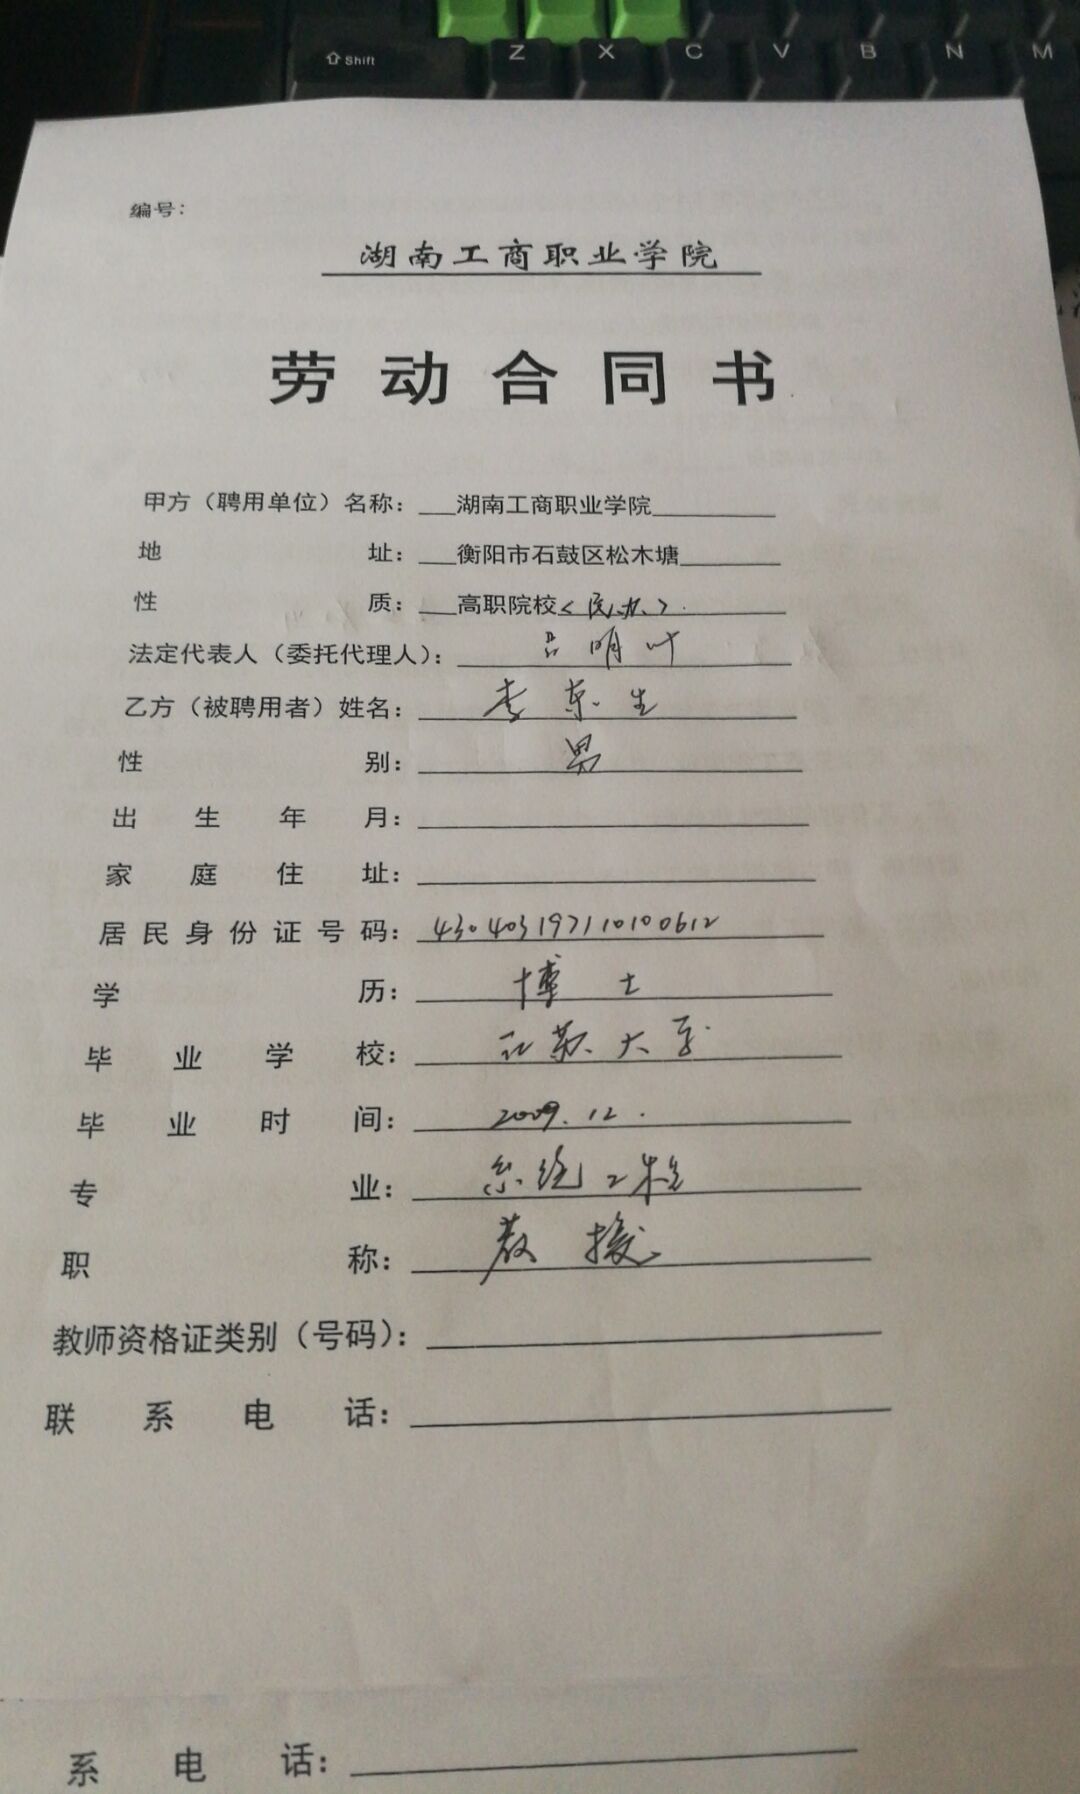 Shift
Z X C V B N M
编号：
湖南工商职业学院
劳动合同书
甲方（聘用单位）名称：湖南工商职业学院
地址：衡阳市石鼓区松木塘
性质：高职院校
法定代表人（委托代理人）：吕明叶
乙方（被聘用者）姓名：李东生
性别：男
出生年月：
家庭住址：
居民身份证号码：430403197110100612
学历：博士
毕业学校：江苏大学
毕业时间：2009.12.
专业：系统工程
职称：教授
教师资格证类别（号码）：
联系电话：
系电话：